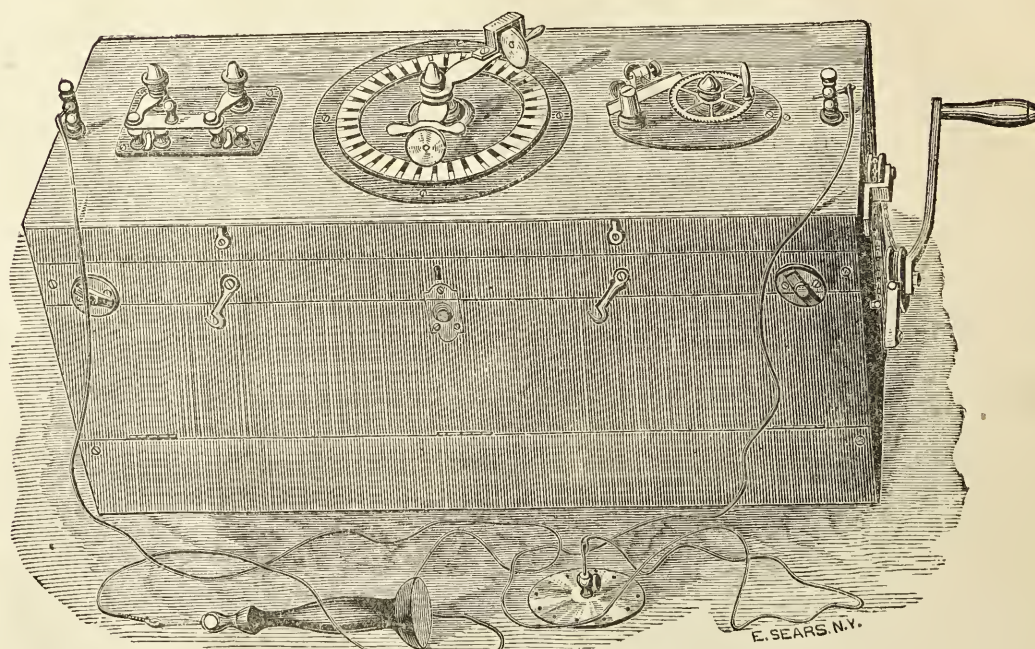 E. SEARS. N.Y.